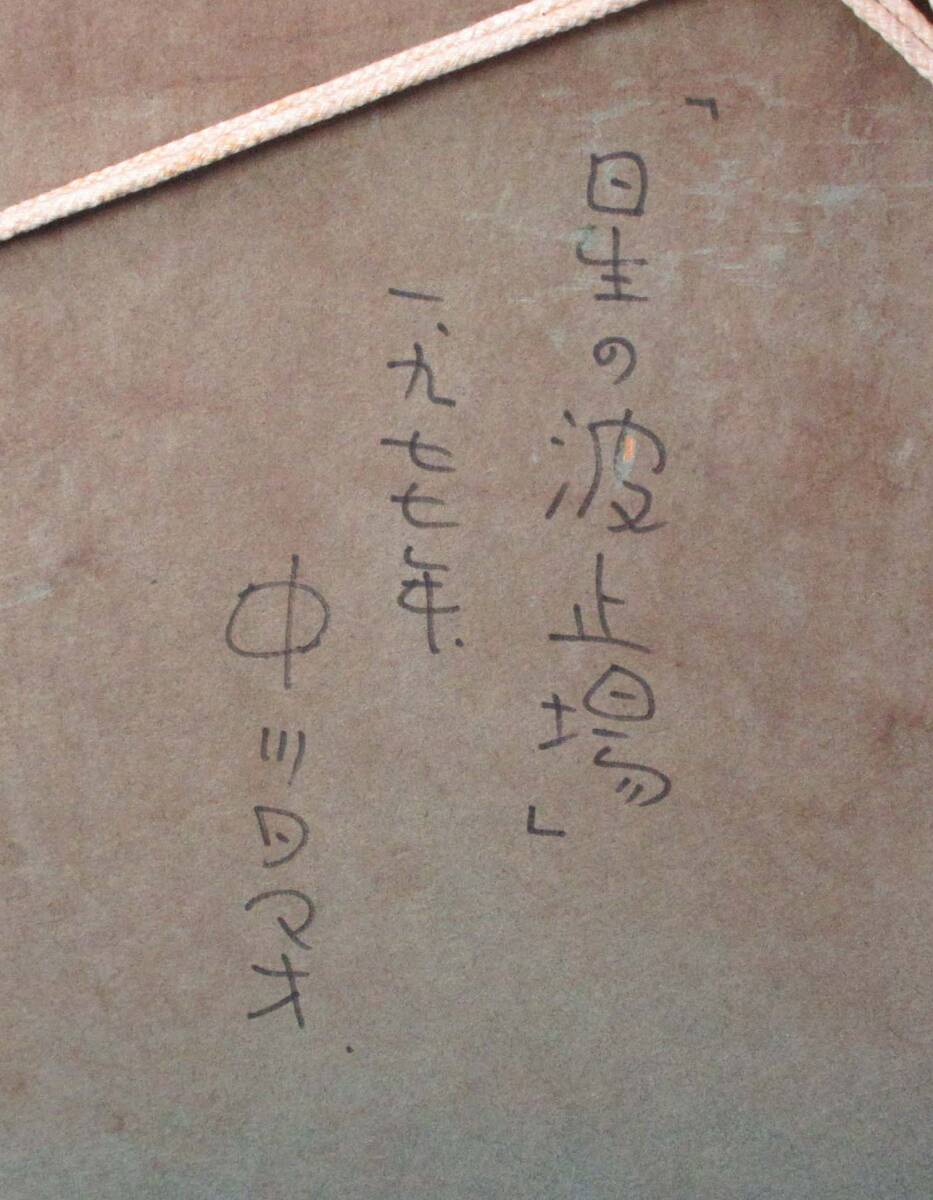 「日生の波止場」
一九七七年.
中川日マオ